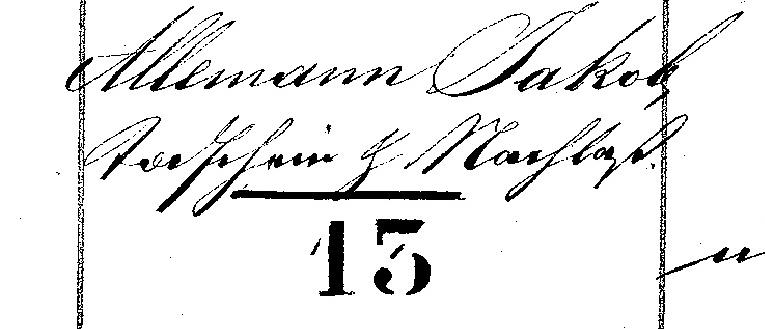 Allemann Jakob,
Todschein & Nachlaß.
13